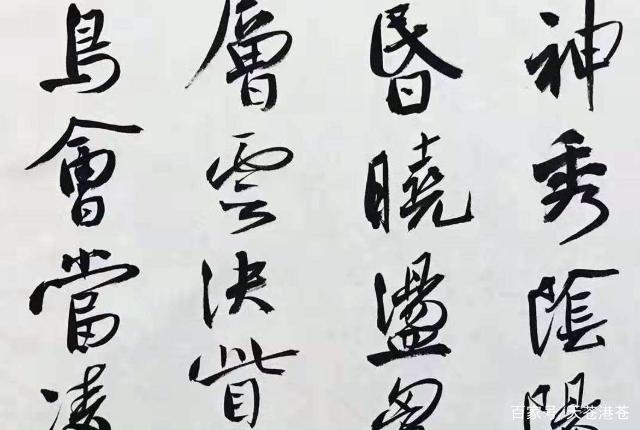 神秀陰陽
昏曉盪胷
層雲決眥
鳥會當凌
百家号/天苍港苍